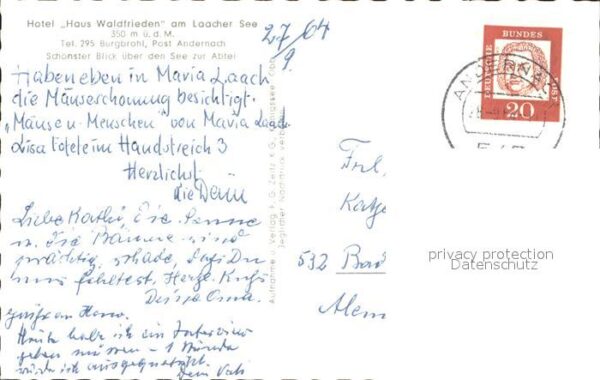 Hotel „Haus Waldfrieden" am Laacher See
350 m ü. d. M.
Tel. 295 Burgbrohl, Post Andernach
Schönster Blick über den See zur Abtei
27/9. 64
Haben eben in Maria Laach
die Mäuseschonung besichtigt.
„Mäuse u. Menschen" von Maria Laach
Lisa tötete im Handstreich 3
Herzlichst
die Deine
Liebe Kathi, Die Sonne
u. die Bäume sind
prächtig, schade, daß Du
uns fehltest. Herzl. Kuß
Deine Oma.
Heute habe ich ein Interview
geben müssen - 1 Stunde
wurde ich ausgequetscht.
Dein Vati
Aufnahme u. Verlag F. G. Zeitz K.G., Königssee/Obb.
Jeglicher Nachdruck verboten
DEUTSCHE BUNDESPOST
20
ANDERNACH
Frl.
Katja
532 Bad
privacy protection
Datenschutz